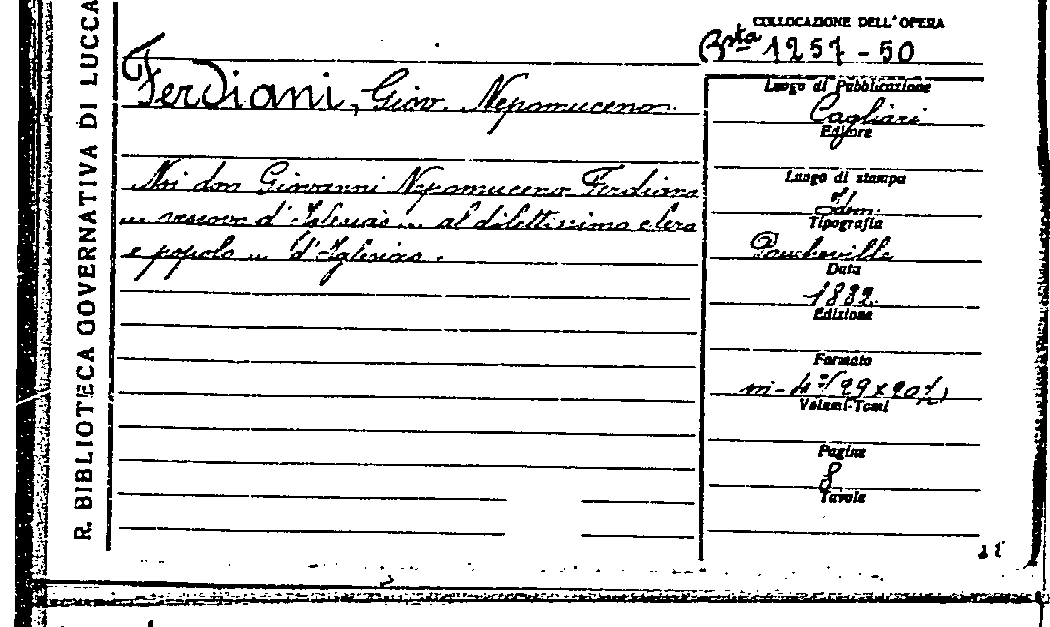 R. BIBLIOTECA GOVERNATIVA DI LUCCA
Ferdiani, Giov. Nepomuceno.
Noi don Giovanni Nepomuceno Ferdiani
... vescovo d'Iglesias ... al dilettissimo clero
e popolo ... d'Iglesias.
COLLOCAZIONE DELL'OPERA
Bsta 1257-50
Luogo di Pubblicazione
Cagliari
Editore
Luogo di stampa
Idem
Tipografia
Data
1882
Edizione
Formato
in-4° (29x20½)
Volumi-Tomi
Pagine
8
Tavole